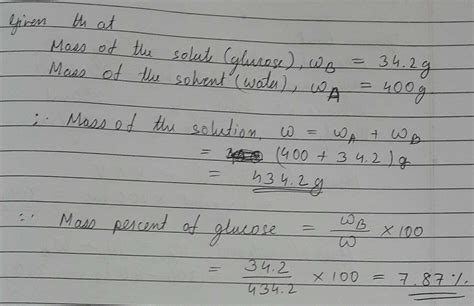 Given that
Mass of the solute (glucose), ω_B = 34.2g
Mass of the solvent (water), ω_A = 400g
∴ Mass of the solution, ω = ω_A + ω_B
= (400 + 34.2)g
= 434.2g
∵ Mass percent of glucose = ω_B/ω × 100
= 34.2/434.2 × 100 = 7.87%